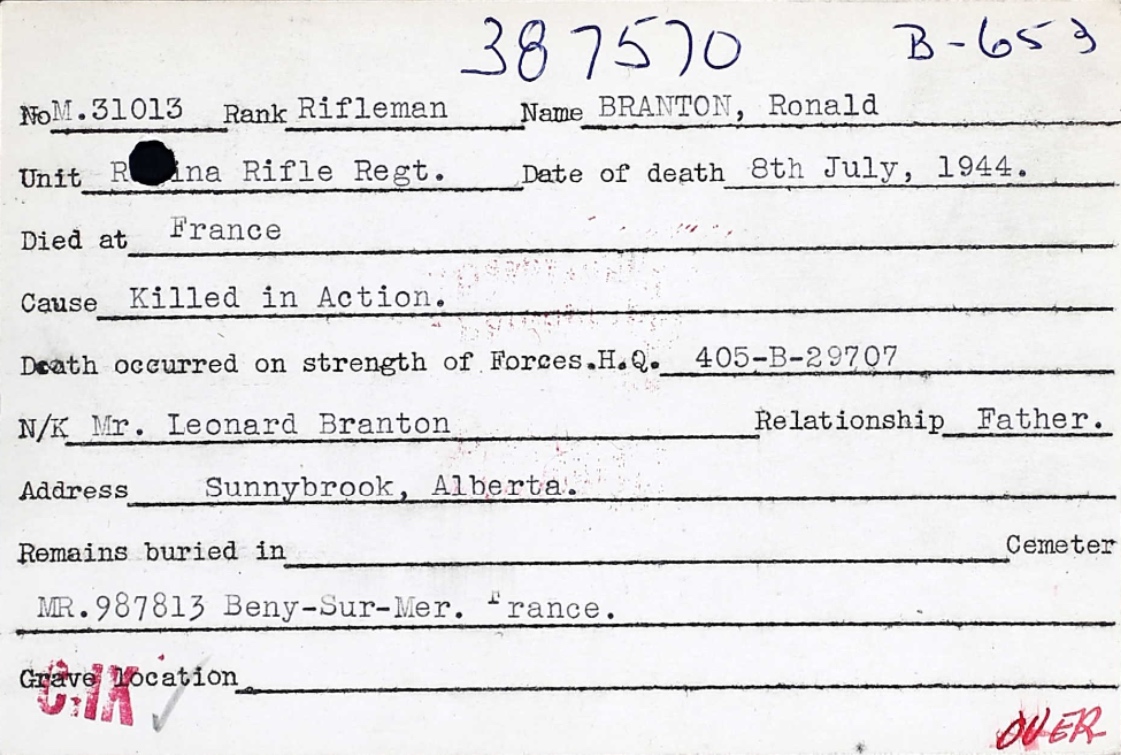 387570 B-653
No M.31013 Rank Rifleman Name BRANTON, Ronald
Unit R ina Rifle Regt. Date of death 8th July, 1944.
Died at France
Cause Killed in Action.
Death occurred on strength of Forces.H.Q. 405-B-29707
N/K Mr. Leonard Branton Relationship Father.
Address Sunnybrook, Alberta.
Remains buried in Cemeter
MR.987813 Beny-Sur-Mer. France.
Grave location
OVER